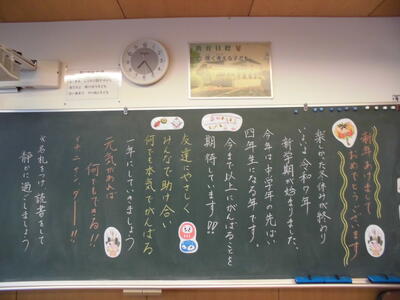 教育目標
よく考える子ども
新年あけまして
おめでとうございます
楽しかった冬休みが終わり
いよいよ令和7年
新学期が始まりました。
今年は中学年の先ぱい
四年生になる年です。
今まで以上にがんばることを
期待しています!!
友達にやさしく
みんなで助け合い
何でも本気でがんばる
一年にしていきましょう
元気があれば
何でもできる!!
※名札をつけ読書をして
静かに過ごしましょう